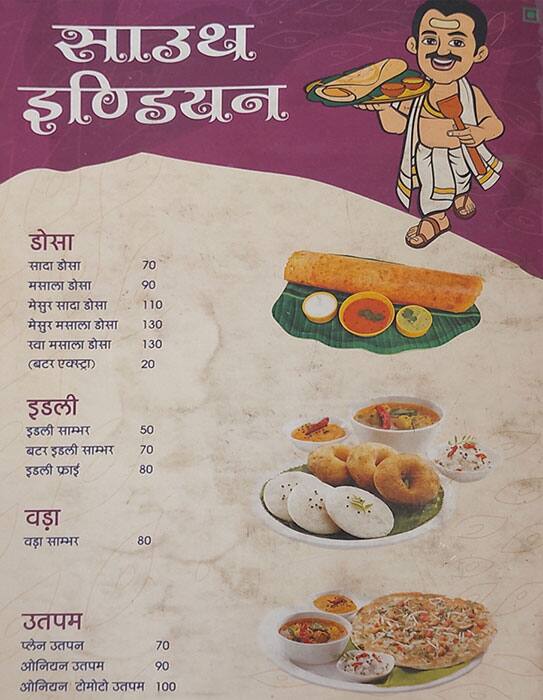 साउथ
इण्डियन
डोसा
सादा डोसा 70
मसाला डोसा 90
मेसुर सादा डोसा 110
मेसुर मसाला डोसा 130
रवा मसाला डोसा 130
(बटर एक्स्ट्रा) 20
इडली
इडली साम्भर 50
बटर इडली साम्भर 70
इडली फ्राई 80
वड़ा
वड़ा साम्भर 80
उतपम
प्लेन उतपन 70
ओनियन उतपम 90
ओनियन टोमोटो उतपम 100